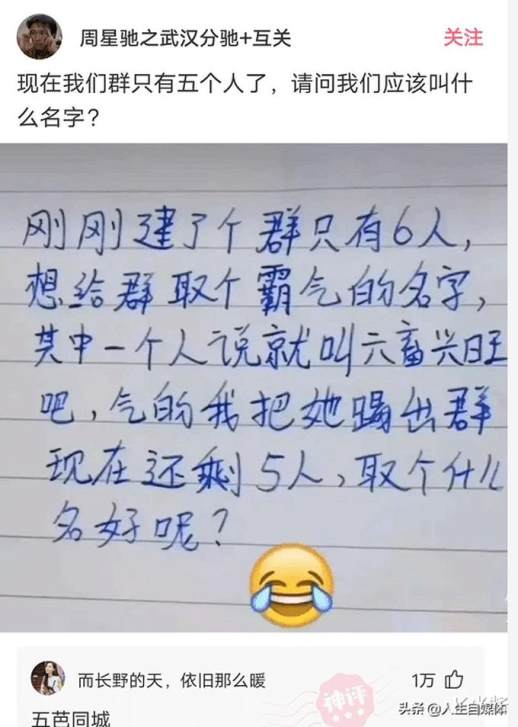 周星驰之武汉分驰+互关
关注
现在我们群只有五个人了，请问我们应该叫什
么名字？
刚刚建了个群只有6人，
想给群取个霸气的名字，
其中一个人说就叫六畜兴旺
吧，气的我把她踢出群
现在还剩5人，取个什么
名好呢？
而长野的天，依旧那么暖
神评
1万
五芭同城
头条 @人生自媒体